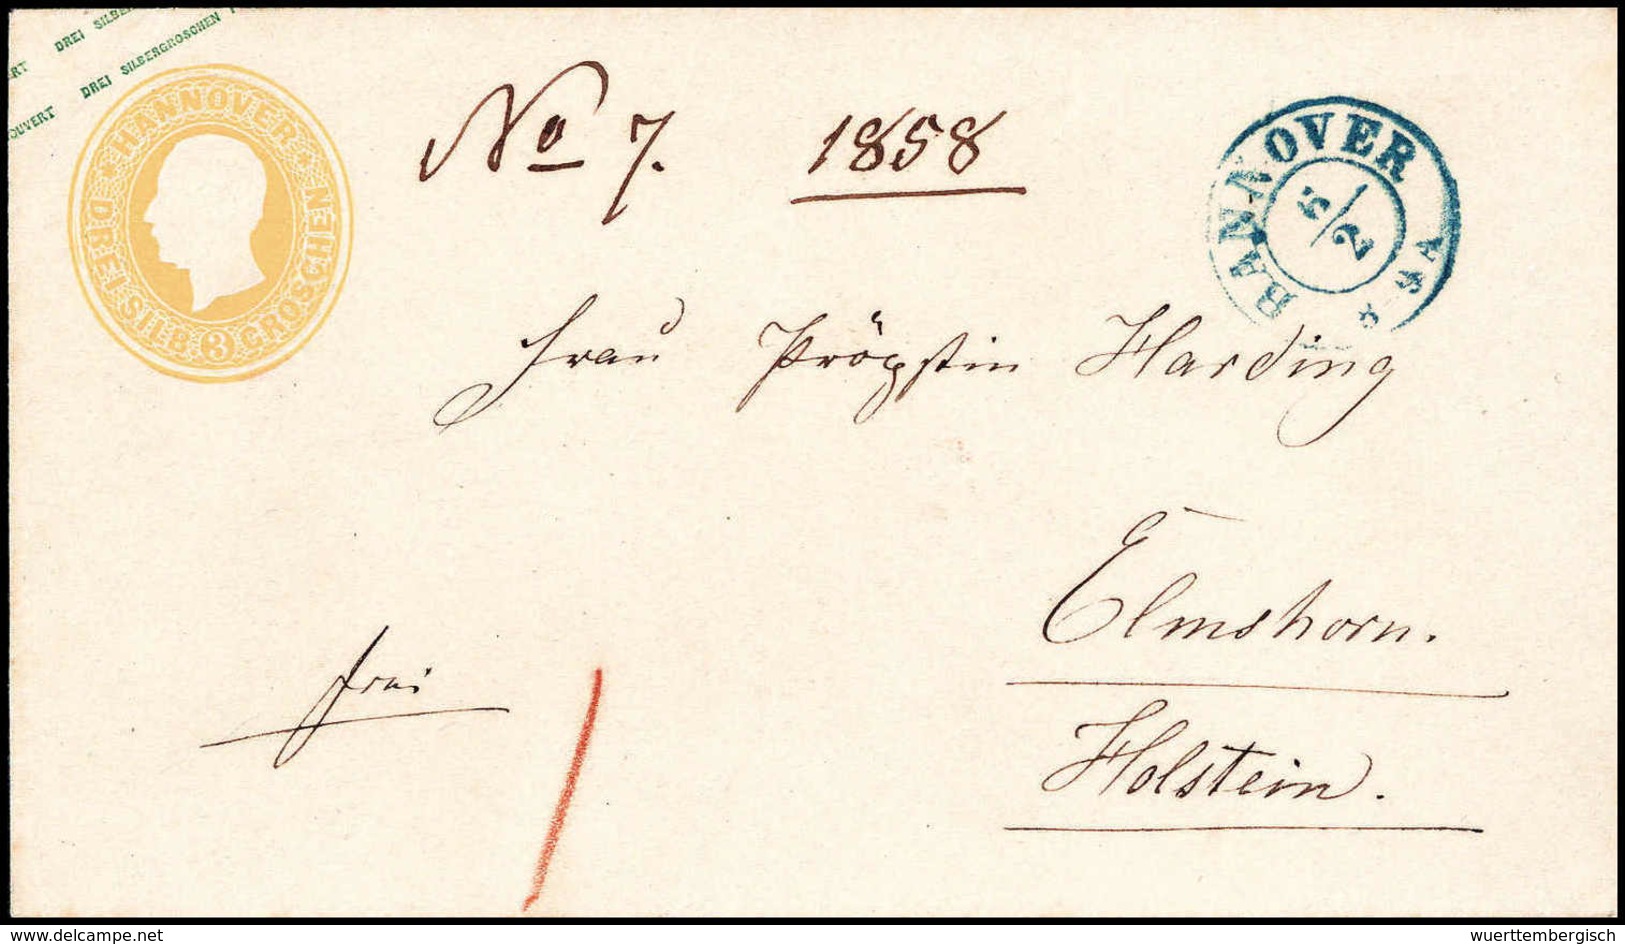 DREI SILBER
ERT DREI SILBERGROSCHEN
COUVERT
HANNOVER
DREI SILB 3 GROSCHEN
No 7. 1858
HANNOVER
6/2
Frau Pröpstin Harding
Elmshorn.
Holstein.
frei
delcampe.net
wuerttembergisch